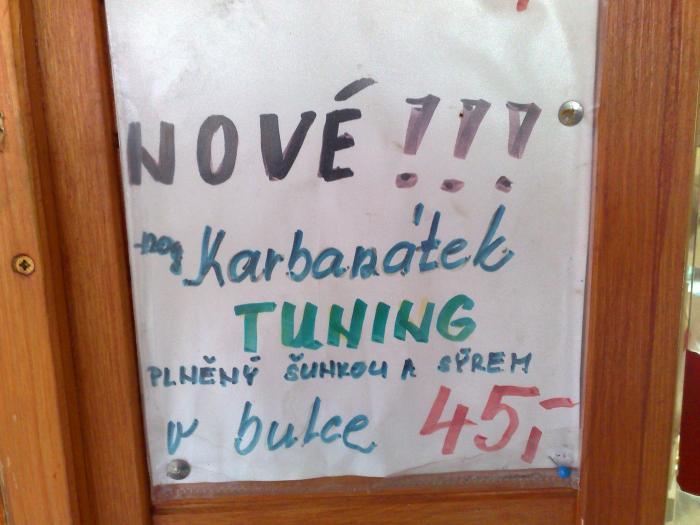 NOVÉ !!!
Karbanátek
TUNING
PLNĚNÝ ŠUNKOU A SÝREM
v bulce 45,-